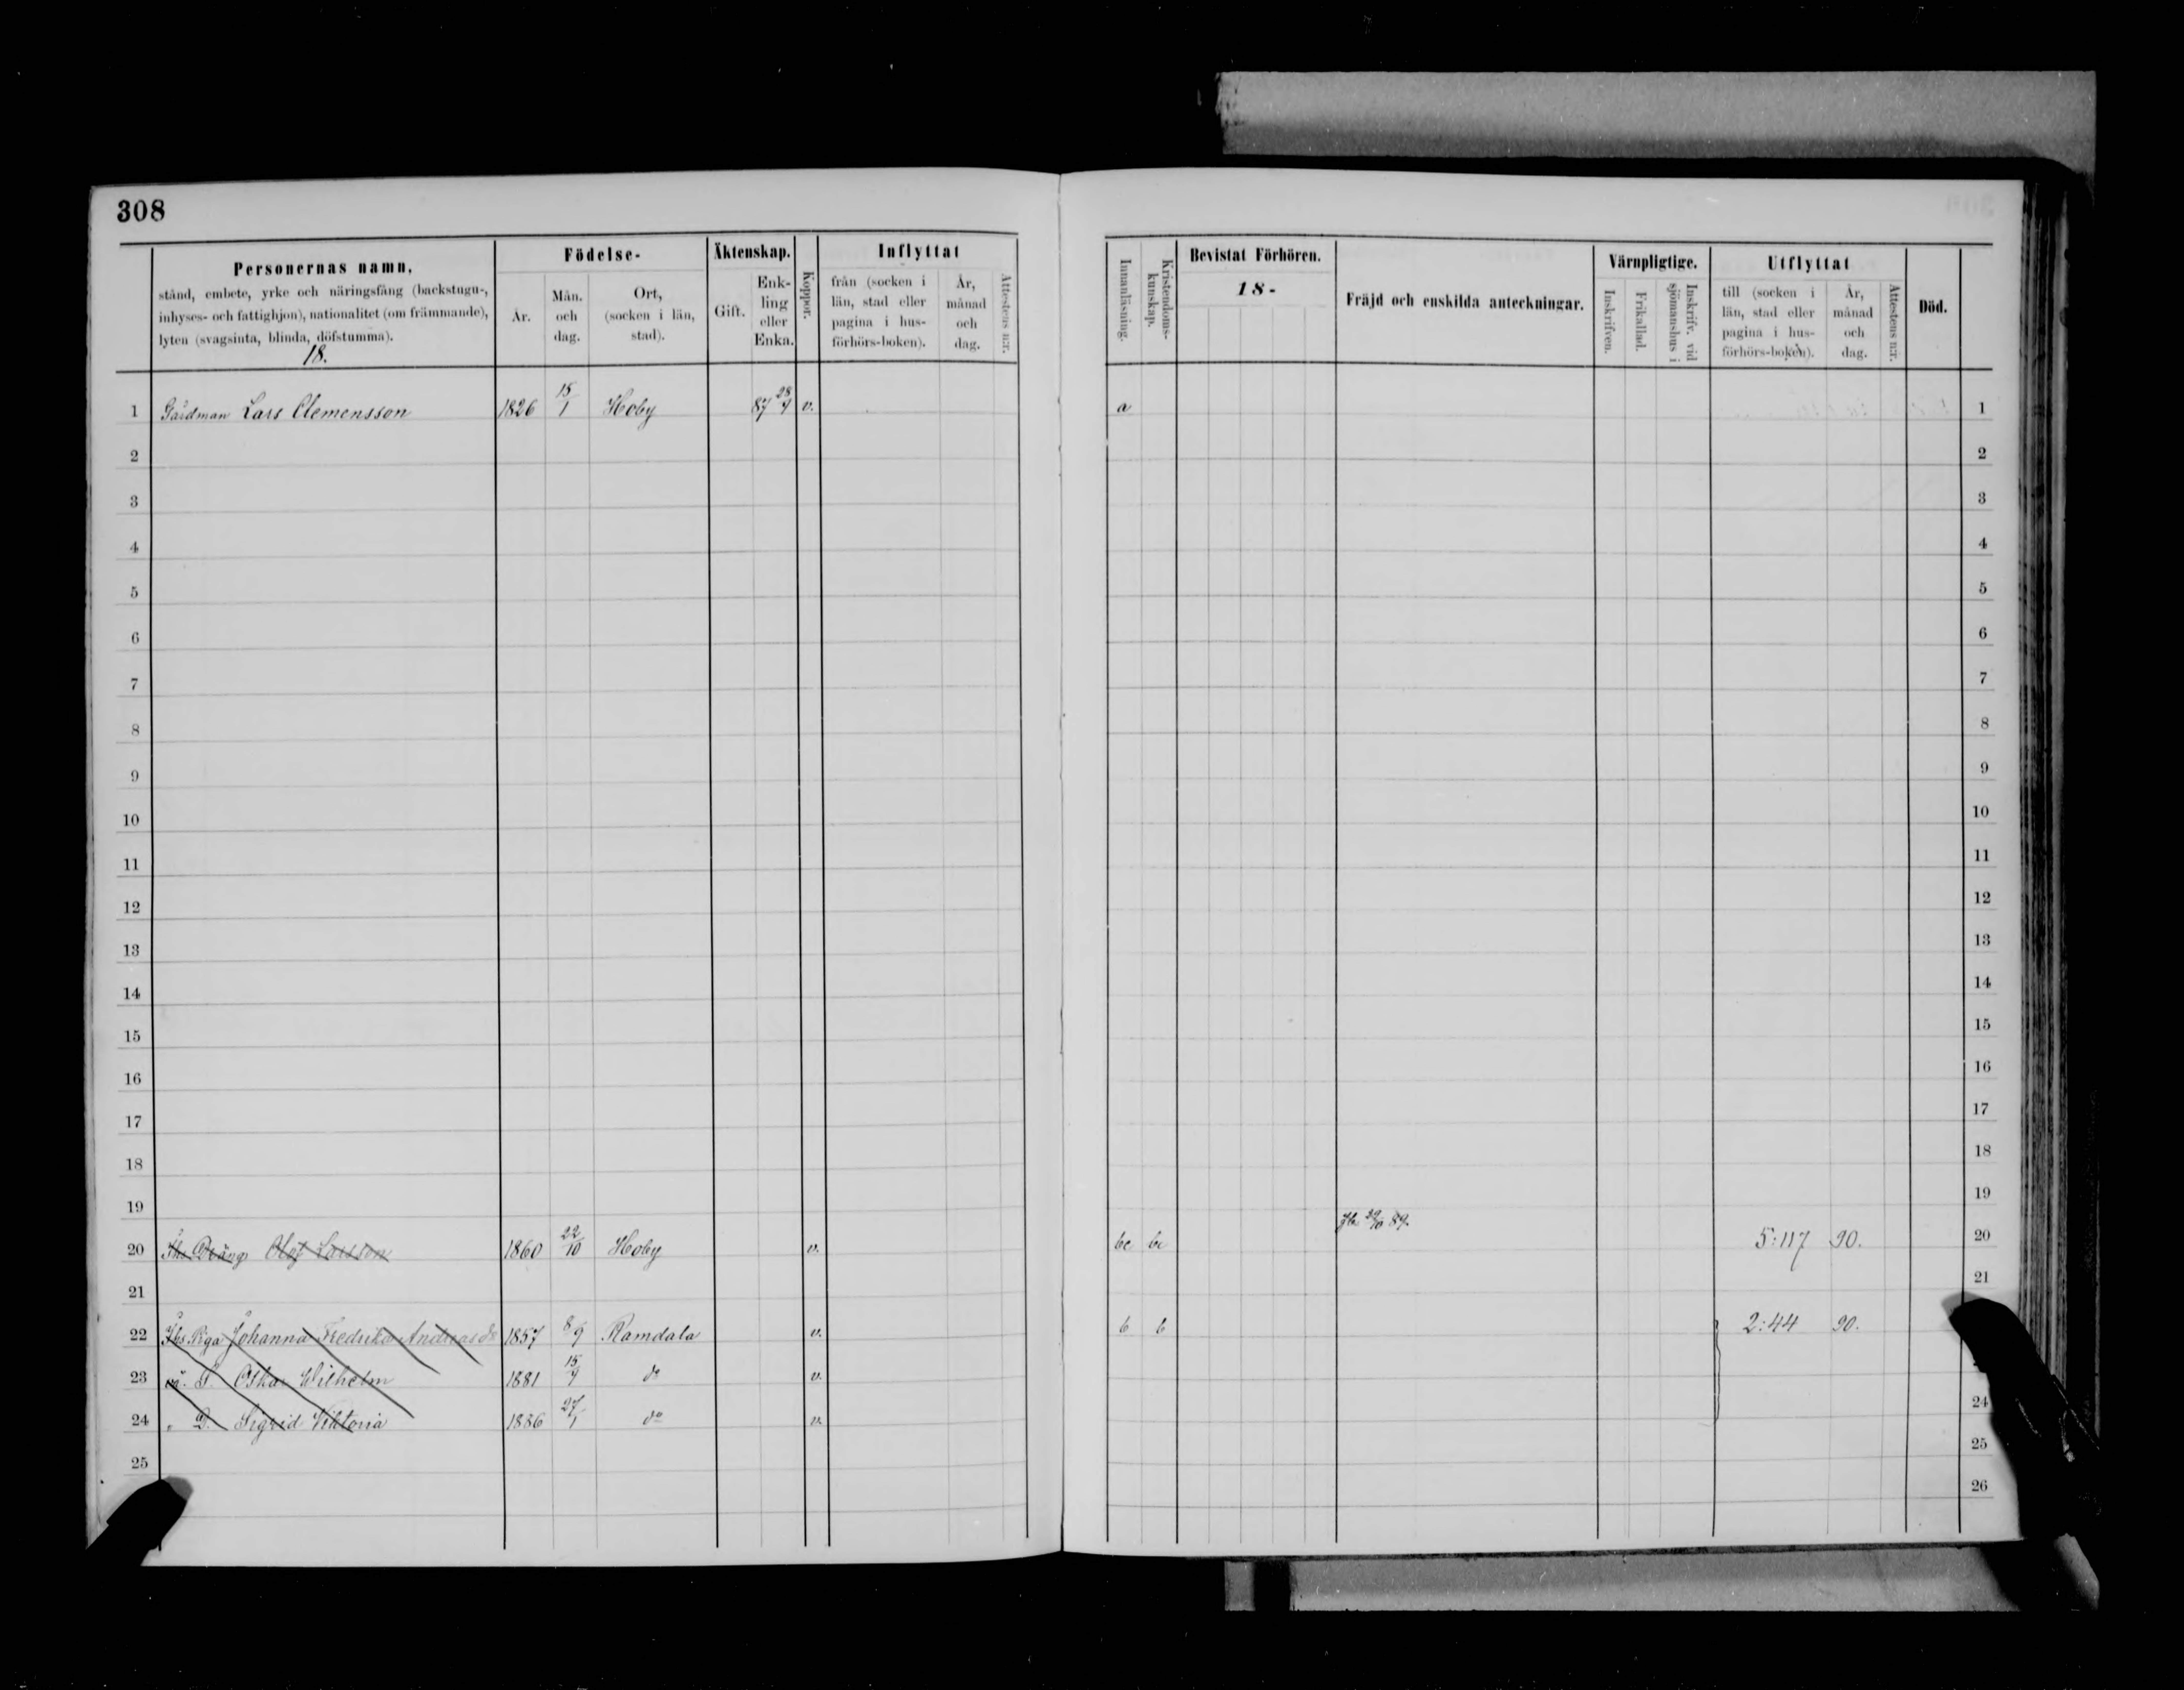 308
Personernas namn,
stånd, embete, yrke och näringsfång (backstugu-,
inhyses- och fattighjon), nationalitet (om främmande),
lyten (svagsinta, blinda, döfstumma).
18.
Födelse-
År.
Mån.
och
dag.
Ort,
(socken i län,
stad).
Äktenskap.
Gift.
Enk-
ling
eller
Enka.
Koppor.
Inflyttat
från (socken i
län, stad eller
pagina i hus-
förhörs-boken).
År,
månad
och
dag.
Attestens n:r.
Innanläsning.
Kristendoms-
kunskap.
Bevistat Förhören.
18-
Fräjd och enskilda anteckningar.
Värnpligtige.
Inskrifven.
Frikallad.
Inskrifv. vid
sjömanshus i
Utflyttat
till (socken i
län, stad eller
pagina i hus-
förhörs-boken).
År,
månad
och
dag.
Attestens n:r.
Död.
1 Gårdman Lars Clemensson 1826 15/1 Hoby 87 28/9 v. a 1
2 2
3 3
4 4
5 5
6 6
7 7
8 8
9 9
10 10
11 11
12 12
13 13
14 14
15 15
16 16
17 17
18 18
19 19
20 Drängs Olof Larsson 1860 22/10 Hoby v. bc bc 89. 5:117 90. 20
21 21
22 Piga Johanna Fredrika Andreasdr 1857 8/9 Ramdala v. b b 2:44 90.
23 oä. S. Oskar Wilhelm 1881 15/9 do v.
24 " D. Sigrid Viktoria 1886 27/1 do v. 24
25 25
26